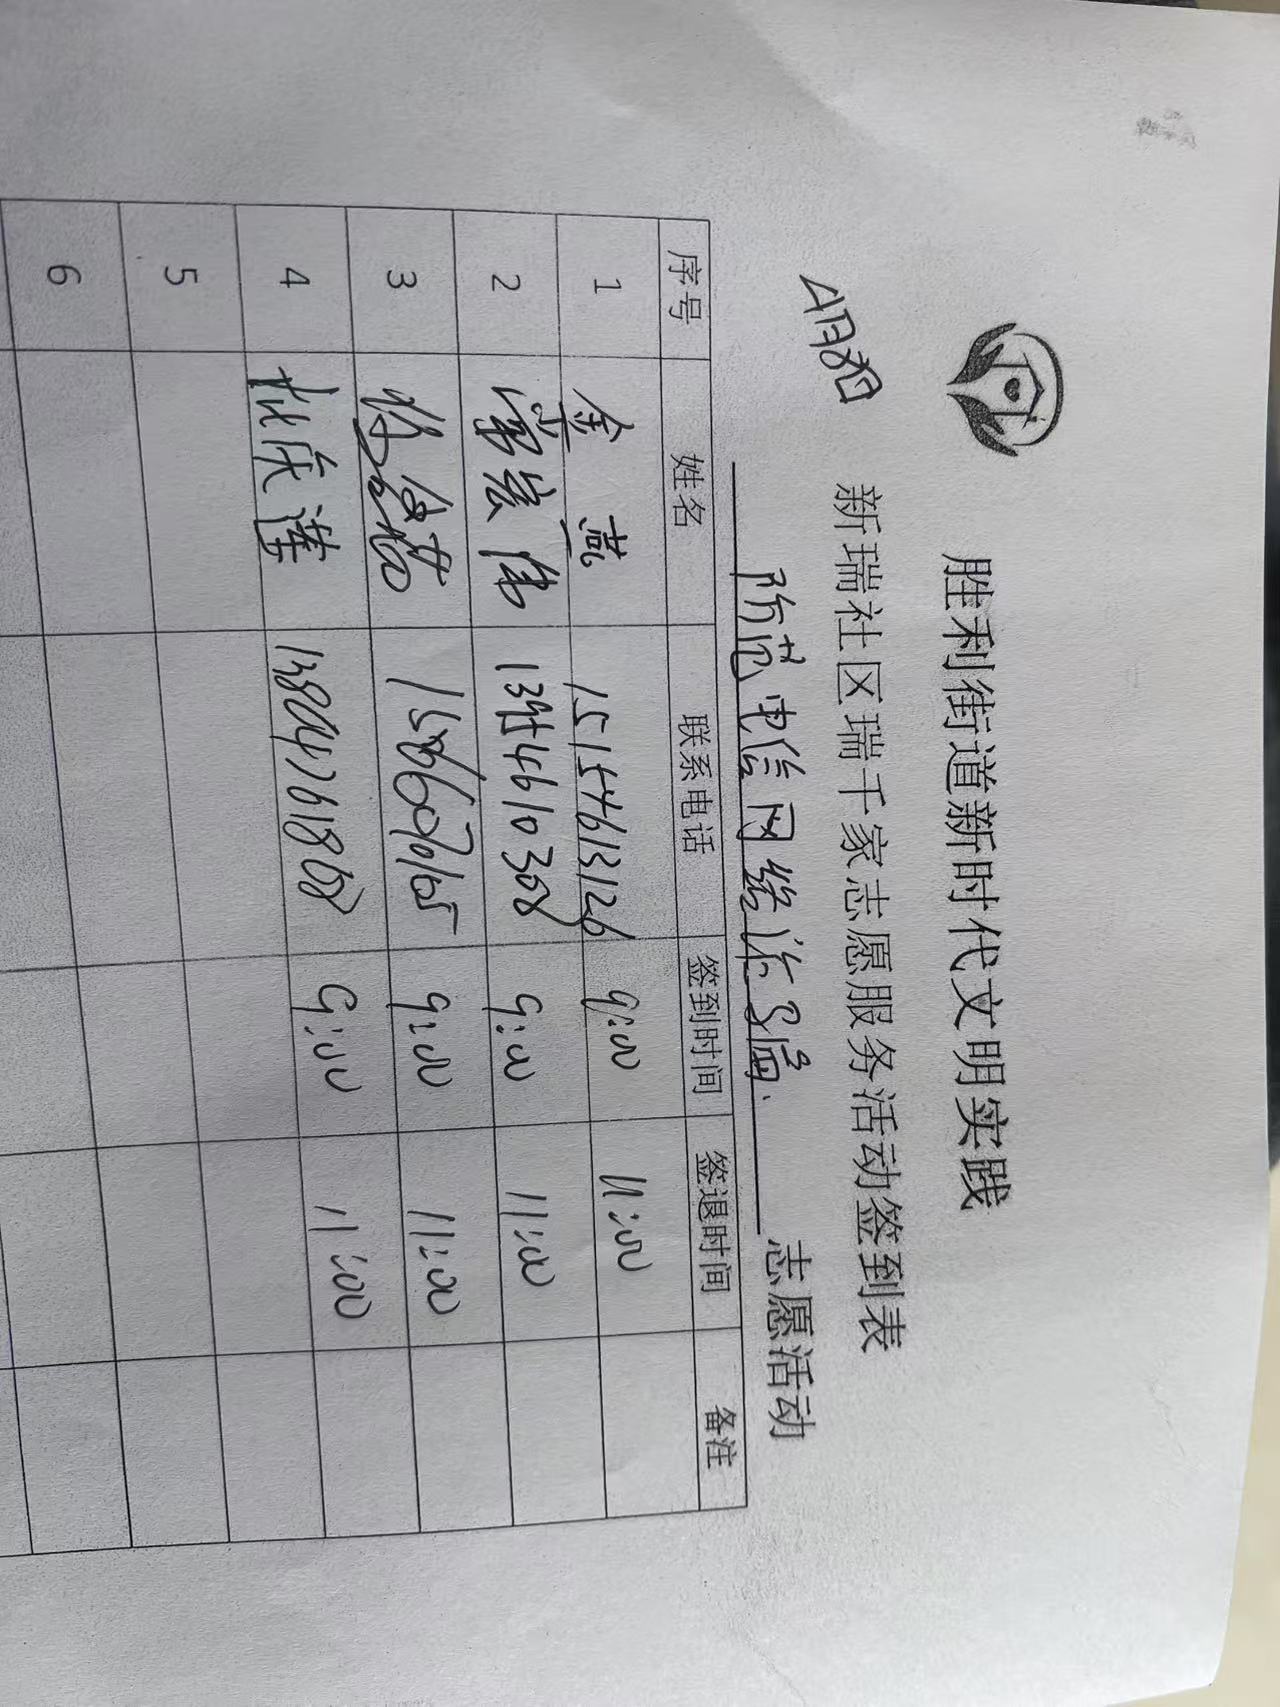 胜利街道新时代文明实践
新瑞社区瑞千家志愿服务活动签到表
4月30日
防范电信网络诈骗 志愿活动
序号 姓名 联系电话 签到时间 签退时间 备注
1 金燕 15154613126 9:00 11:00
2 宏伟 13954610308 9:00 11:00
3 9:00 11:00
4 庆莲 9:00 11:00
5
6